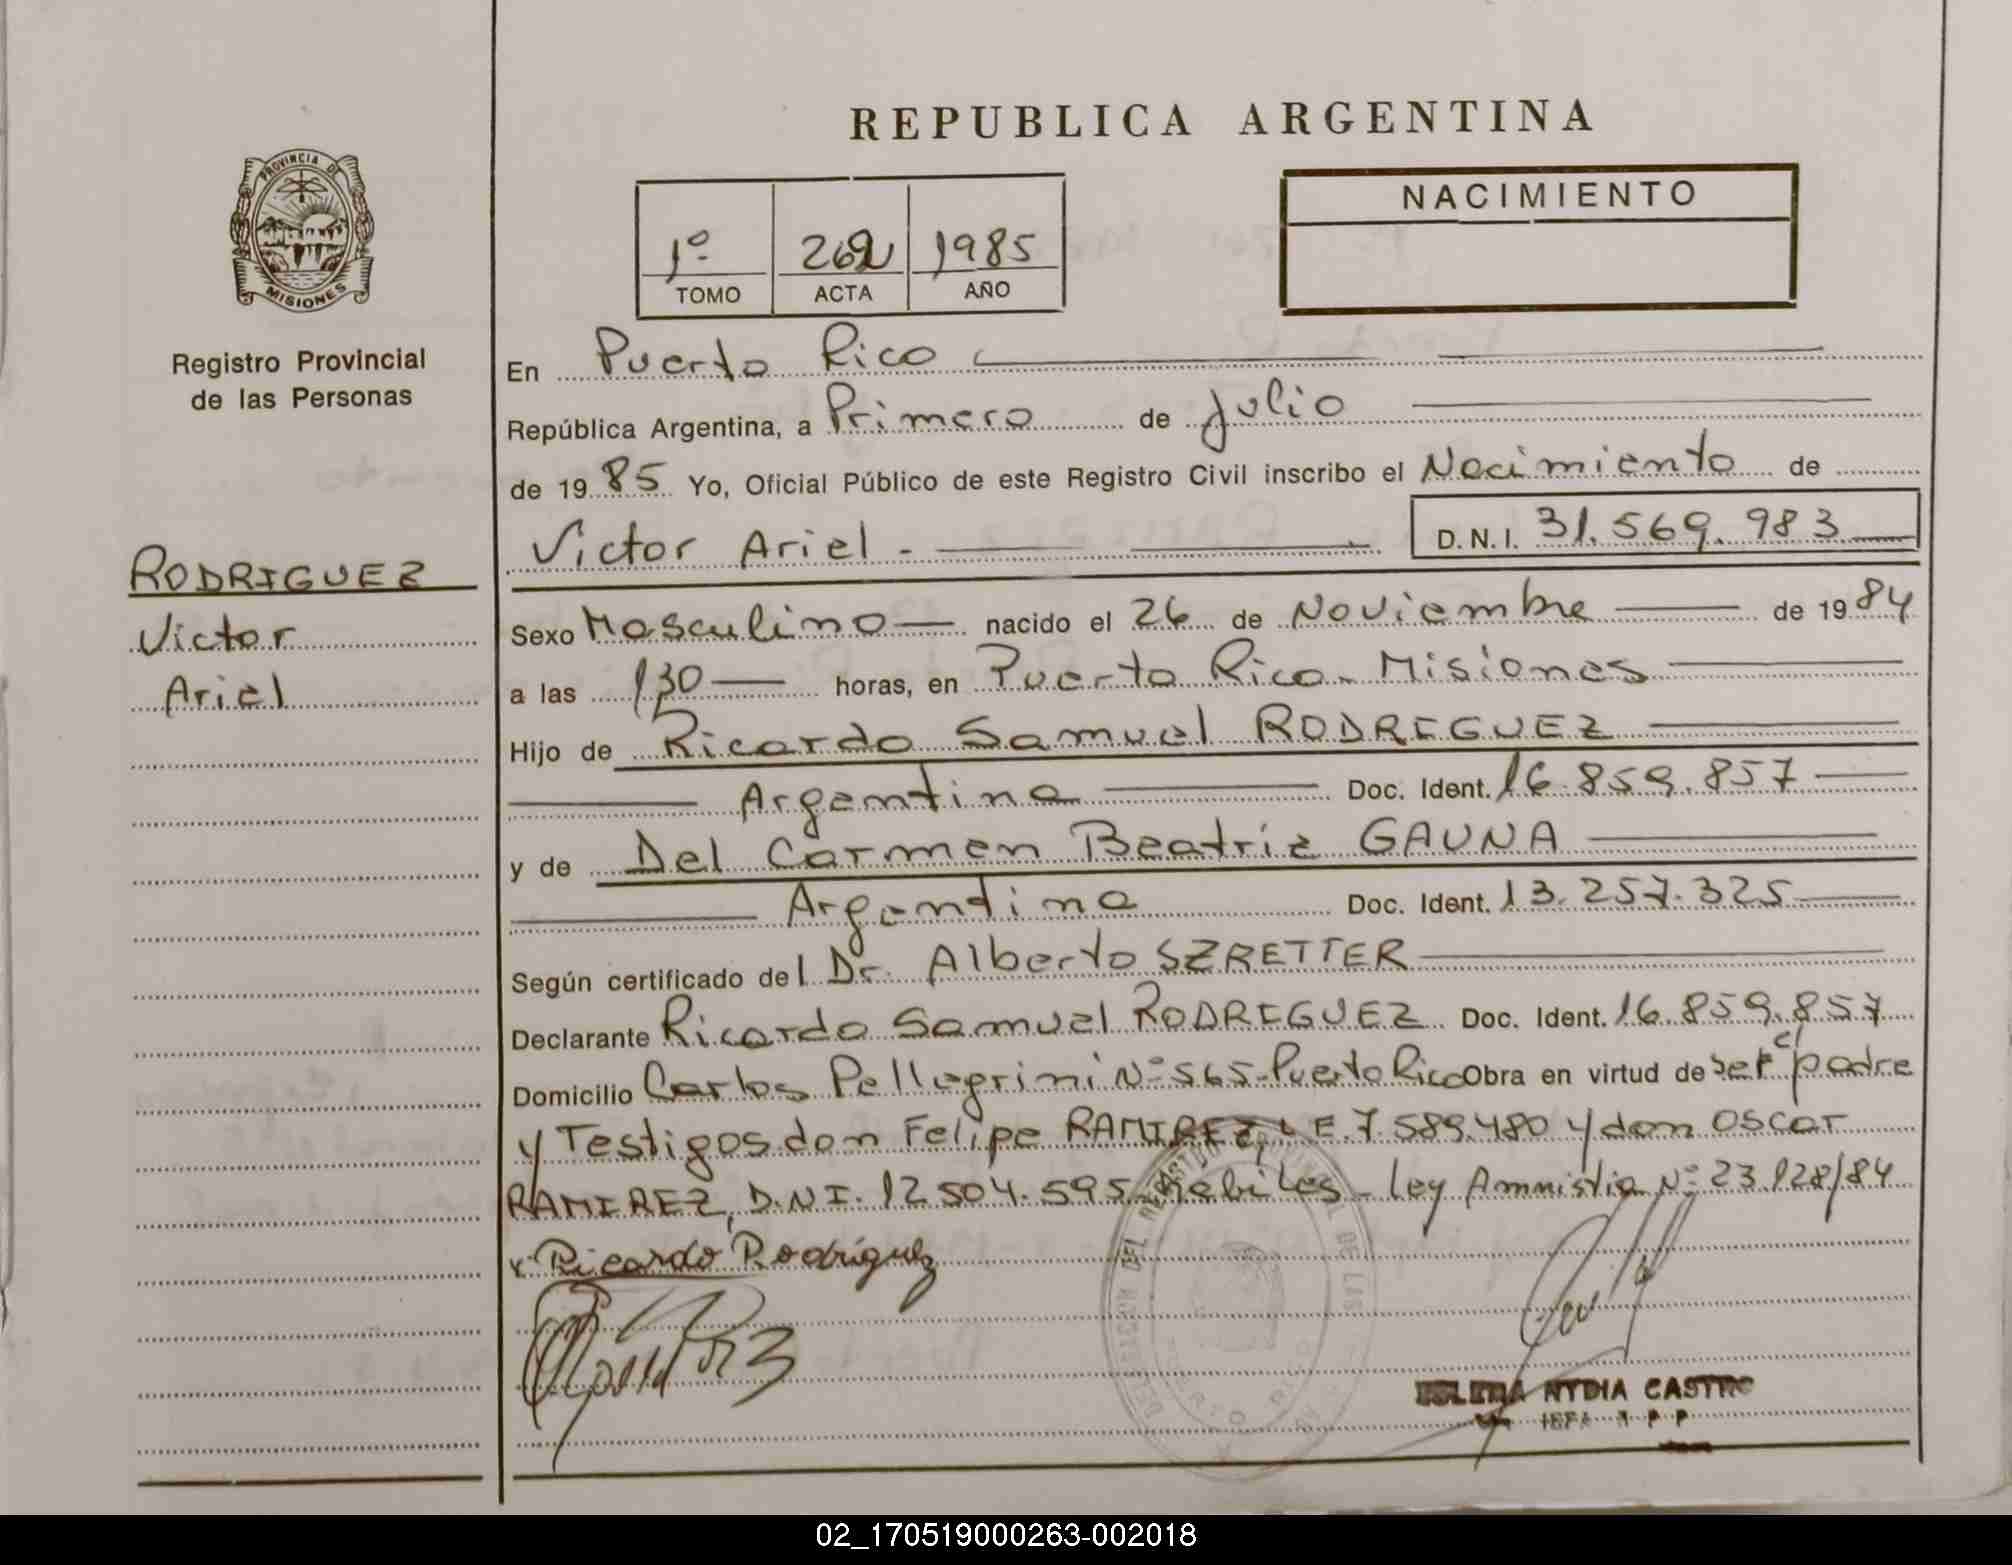 REPUBLICA ARGENTINA
PROVINCIA DE
MISIONES
Registro Provincial
de las Personas
1º 262 1985
TOMO ACTA AÑO
NACIMIENTO
En Puerto Rico
República Argentina, a Primero de Julio
de 1985 Yo, Oficial Público de este Registro Civil inscribo el Nacimiento de
Victor Ariel - D.N.I. 31.569.983
RODRIGUEZ
Victor
Ariel
Sexo Masculino nacido el 26 de Noviembre de 1984
a las 1,30 horas, en Puerto Rico - Misiones
Hijo de Ricardo Samuel RODRIGUEZ
Argentina Doc. Ident. 16.859.857
y de Del Carmen Beatriz GAUNA
Argentina Doc. Ident. 13.257.325
Según certificado del Dr. Alberto SZRETTER
Declarante Ricardo Samuel RODRIGUEZ Doc. Ident. 16.859.857
Domicilio Carlos Pellegrini Nº 565-Puerto Rico Obra en virtud de ser el padre
y Testigos don Felipe RAMIREZ, L.E. 7.589.480 y don Oscar
RAMIREZ, D.N.I. 12.504.595 - Habiles - Ley Amnistia Nº 23.128/84
x Ricardo Rodriguez
NYDIA CASTRO
02_170519000263-002018